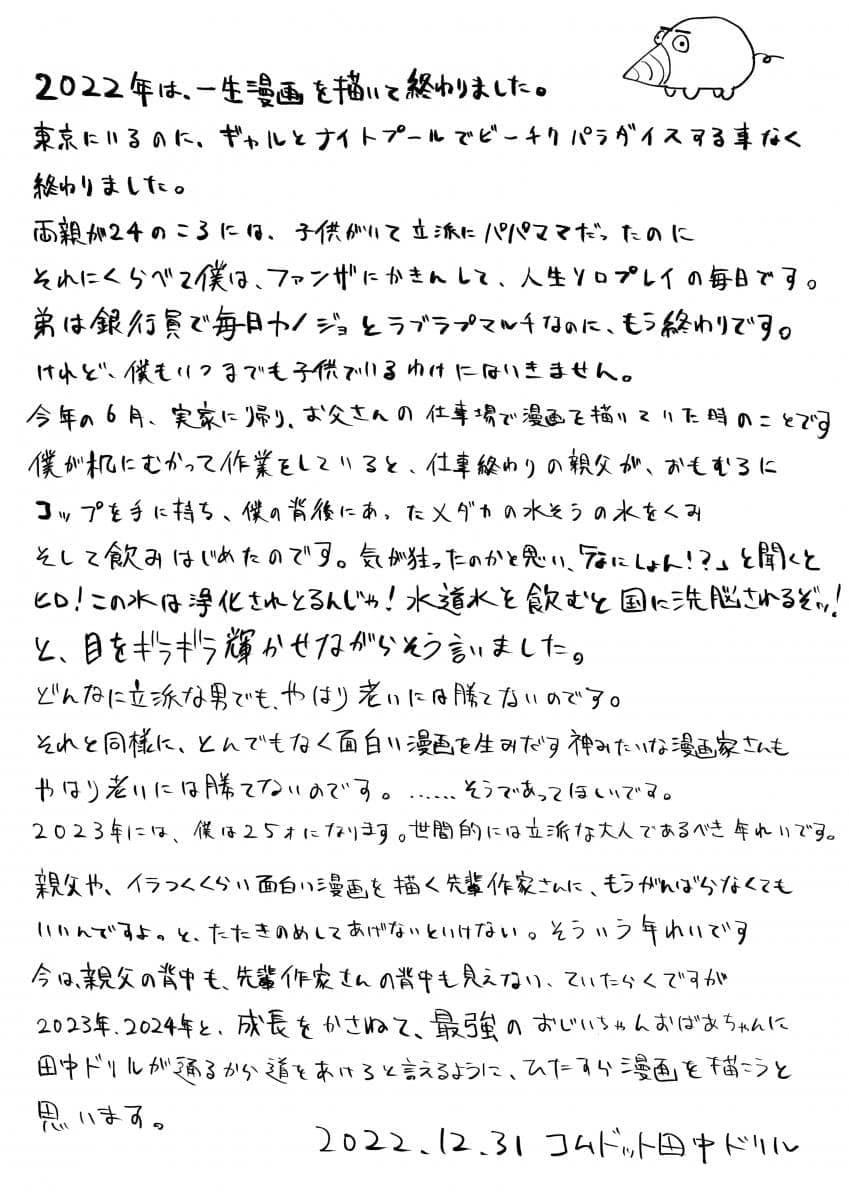 2022年は、一生漫画を描いて終わりました。
東京にいるのに、ギャルとナイトプールでビーチクパラダイスする事なく
終わりました。
両親が24のころには、子供がいて立派にパパママだったのに
それにくらべて僕は、ファンザにかきんして、人生ソロプレイの毎日です。
弟は銀行員で毎日カノジョとラブラブマルチなのに、もう終わりです。
けれど、僕もいつまでも子供でいるわけにはいきません。
今年の6月、実家に帰り、お父さんの仕事場で漫画を描いていた時のことです
僕が机にむかって作業をしていると、仕事終わりの親父が、おもむろに
コップを手に持ち、僕の背後にあったメダカの水そうの水をくみ
そして飲みはじめたのです。気が狂ったのかと思い、「なにしよん!?」と聞くと
ヒロ!この水は浄化されとるんじゃ!水道水を飲むと国に洗脳されるぞッ!
と、目をギラギラ輝かせながらそう言いました。
どんなに立派な男でも、やはり老いには勝てないのです。
それと同様に、とんでもなく面白い漫画を生みだす神みたいな漫画家さんも
やはり老いには勝てないのです。……そうであってほしいです。
2023年には、僕は25才になります。世間的には立派な大人であるべき年れいです。
親父や、イラつくくらい面白い漫画を描く先輩作家さんに、もうがんばらなくても
いいんですよっと、たたきのめしてあげないといけない。そういう年れいです
今は、親父の背中も、先輩作家さんの背中も見えない、ていたらくですが
2023年、2024年と、成長をかさねて、最強のおじいちゃんおばあちゃんに
田中ドリルが通るから道をあけろと言えるように、ひたすら漫画を描こうと
思います。
2022.12.31 コムドット田中ドリル